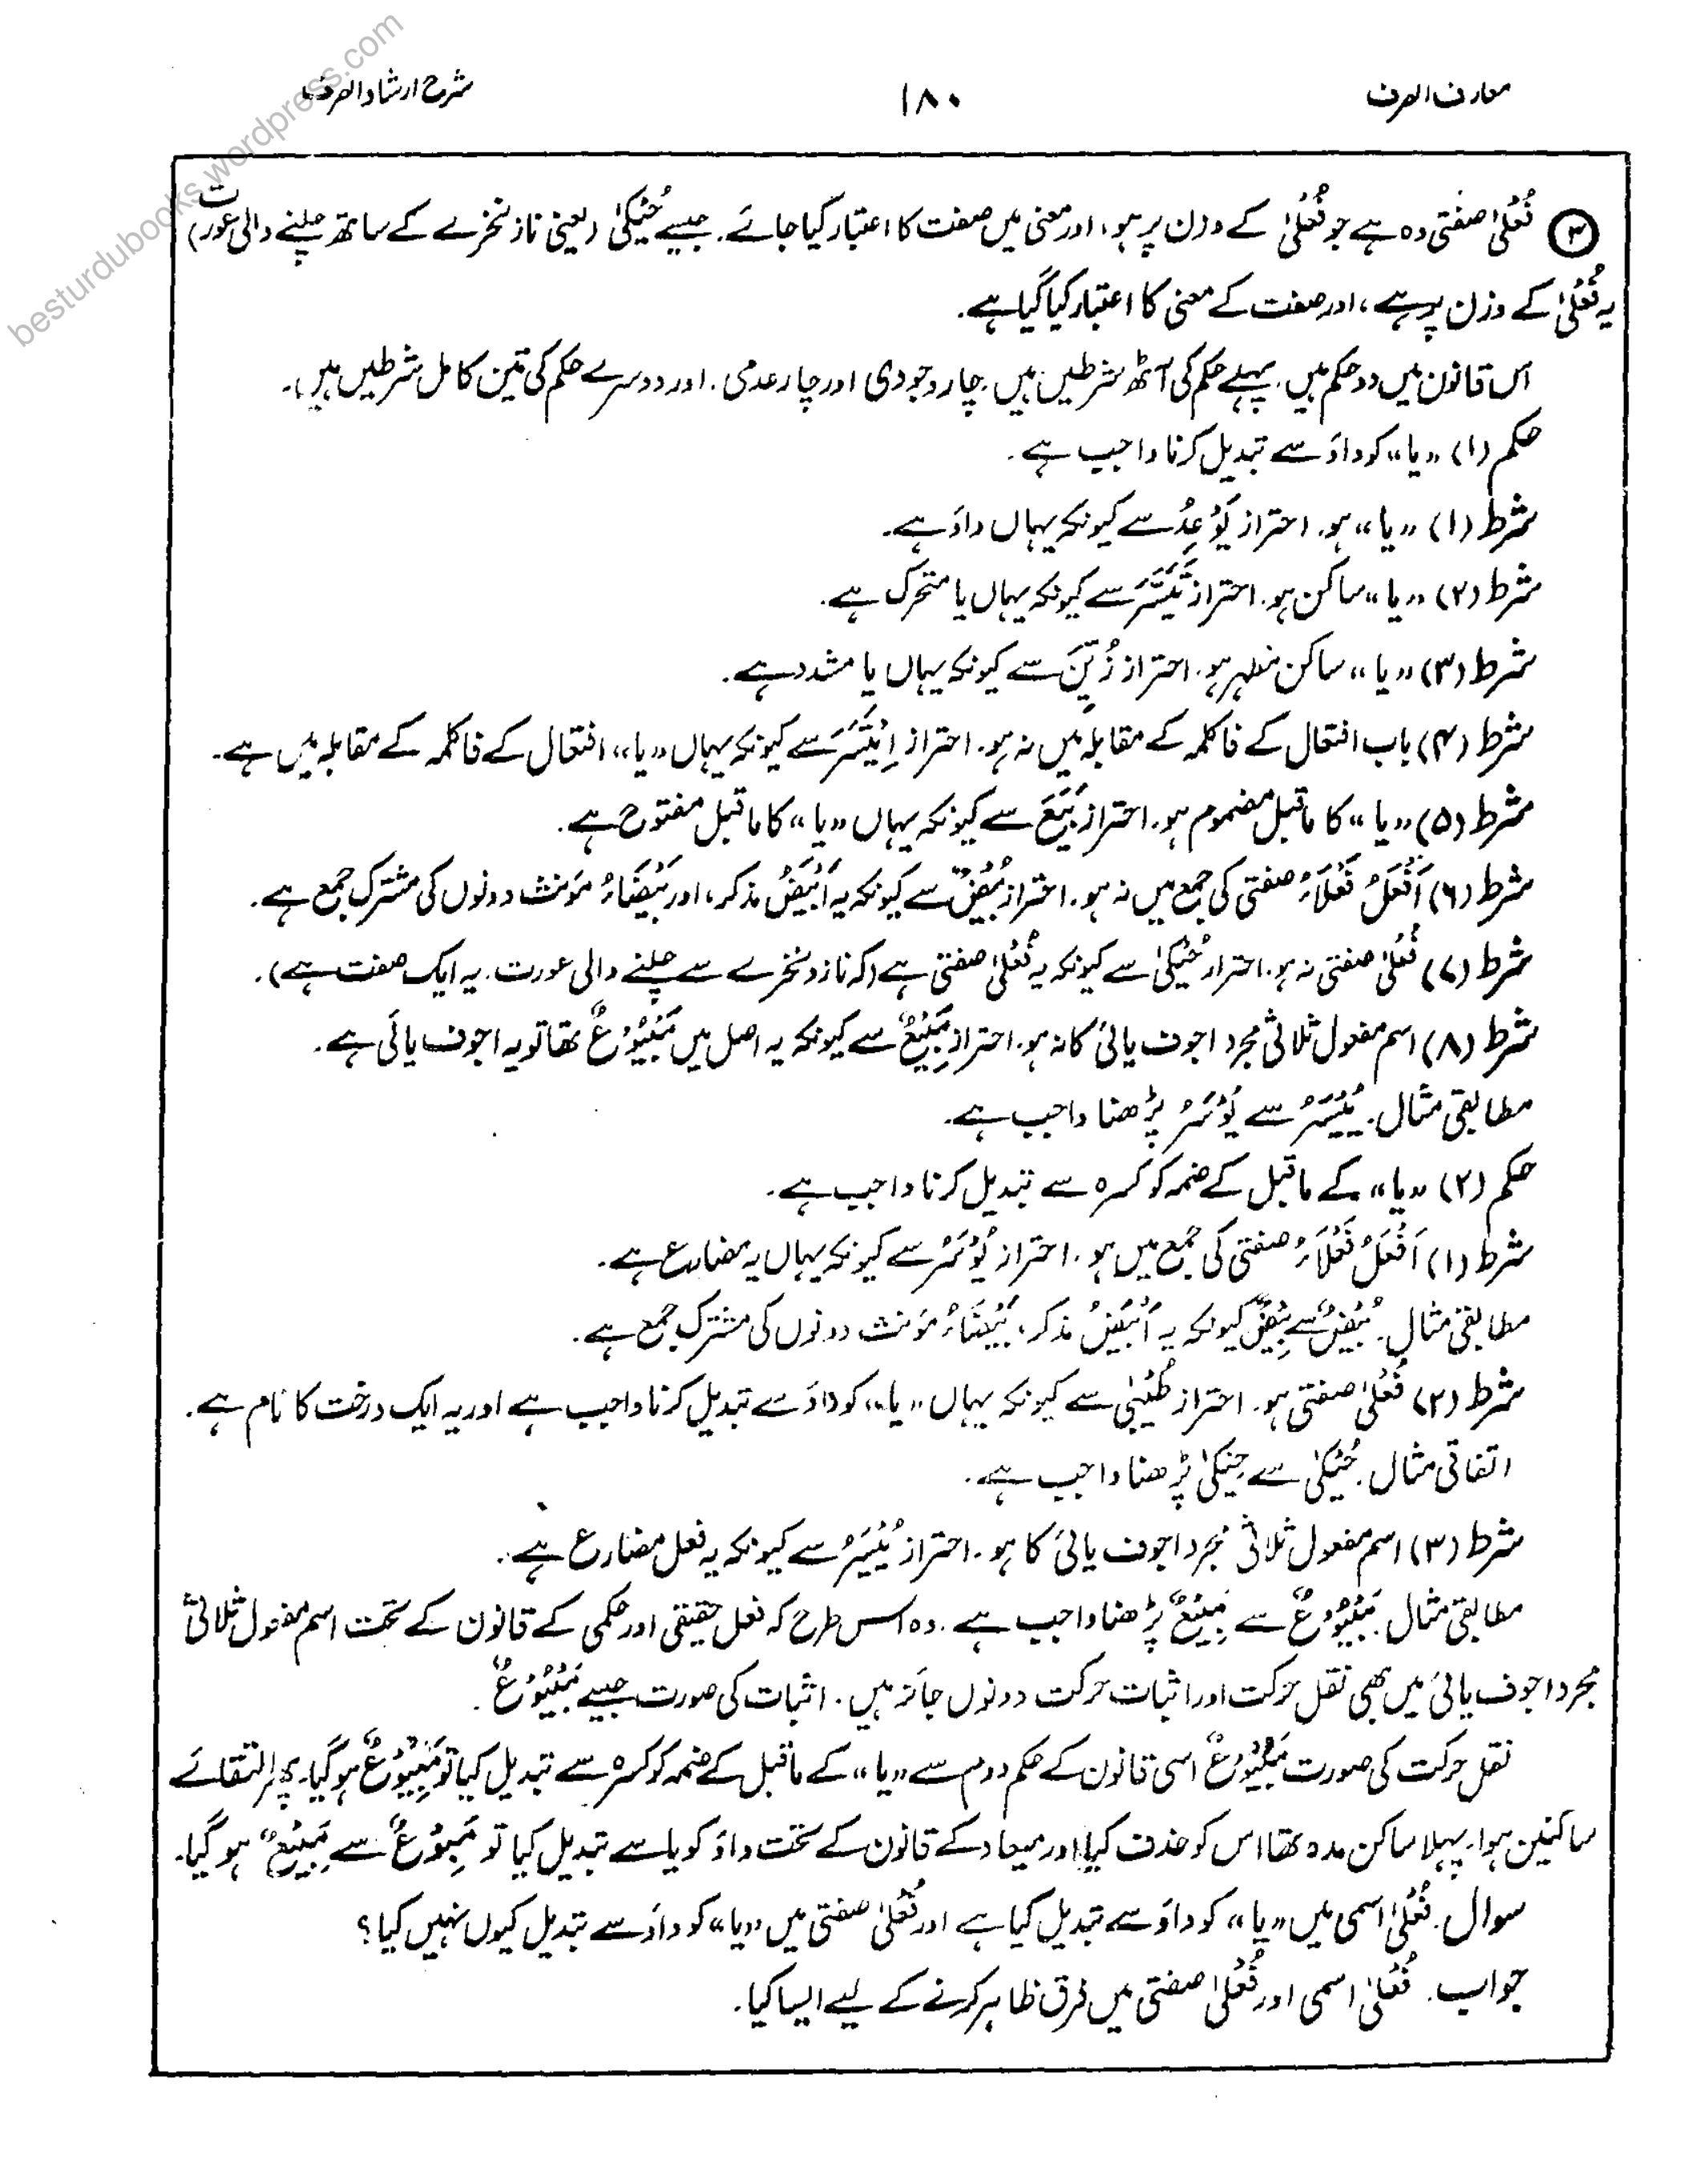 معارف الصرف
۱۸۰
شرح ارشاد الصرف
besturdubooks.wordpress.com
③ فُعْلیٰ صفتی وہ ہے جو فُعْلیٰ کے وزن پر ہو، اور معنی میں صفت کا اعتبار کیا جائے۔ جیسے حُیْکیٰ (یعنی ناز نخرے کے ساتھ چلنے والی عورت)
یہ فُعْلیٰ کے وزن پر ہے، اور صفت کے معنی کا اعتبار کیا گیا ہے۔
اس قانون میں دو حکم ہیں۔ پہلے حکم کی آٹھ شرطیں ہیں۔ چار وجودی اور چار عدمی۔ اور دوسرے حکم کی تین کامل شرطیں ہیں۔
حکم (۱) «یا» کو واؤ سے تبدیل کرنا واجب ہے۔
شرط (۱) «یا» ہو۔ احتراز یَوْعِدُ سے کیونکہ یہاں واؤ ہے۔
شرط (۲) «یا» ساکن ہو۔ احتراز تَیَسَّرَ سے کیونکہ یہاں یا متحرک ہے۔
شرط (۳) «یا» ساکن مظہر ہو۔ احتراز زُیِّنَ سے کیونکہ یہاں یا مشدد ہے۔
شرط (۴) باب افتعال کے فاکلمہ کے مقابلہ میں نہ ہو۔ احتراز اِیْتَسَرَ سے کیونکہ یہاں «یا» افتعال کے فاکلمہ کے مقابلہ میں ہے۔
شرط (۵) «یا» کا ماقبل مضموم ہو۔ احتراز بَیَعَ سے کیونکہ یہاں «یا» کا ماقبل مفتوح ہے۔
شرط (۶) اَفْعَلُ فَعْلَاءُ صفتی کی جمع میں نہ ہو۔ احتراز بُیْضٌ سے کیونکہ یہ اَبْیَضُ مذکر، اور بَیْضَاءُ مؤنث دونوں کی مشترک جمع ہے۔
شرط (۷) فُعْلیٰ صفتی نہ ہو۔ احتراز حُیْکیٰ سے کیونکہ یہ فُعْلیٰ صفتی ہے (کہ ناز و نخرے سے چلنے والی عورت۔ یہ ایک صفت ہے)۔
شرط (۸) اسم مفعول ثلاثی مجرد اجوف یائی کا نہ ہو۔ احتراز مَبِیْعٌ سے کیونکہ یہ اصل میں مَبْیُوْعٌ تھا تو یہ اجوف یائی ہے۔
مطابقی مثال۔ یُیْسَرُ سے یُوْسَرُ پڑھنا واجب ہے۔
حکم (۲) «یا» کے ماقبل کے ضمہ کو کسرہ سے تبدیل کرنا واجب ہے۔
شرط (۱) اَفْعَلُ فَعْلَاءُ صفتی کی جمع میں ہو۔ احتراز یُوْسَرُ سے کیونکہ یہاں یہ مضارع ہے۔
مطابقی مثال۔ بُیْضٌ سے بِیْضٌ کیونکہ یہ اَبْیَضُ مذکر، بَیْضَاءُ مؤنث دونوں کی مشترک جمع ہے۔
شرط (۲) فُعْلیٰ صفتی ہو۔ احتراز طُیْبیٰ سے کیونکہ یہاں «یا» کو واؤ سے تبدیل کرنا واجب ہے اور یہ ایک درخت کا نام ہے۔
اتفاقی مثال۔ حُیْکیٰ سے حِیْکیٰ پڑھنا واجب ہے۔
شرط (۳) اسم مفعول ثلاثی مجرد اجوف یائی کا ہو۔ احتراز یُیْسَرُ سے کیونکہ یہ فعل مضارع ہے۔
مطابقی مثال۔ مَبْیُوْعٌ سے مَبِیْعٌ پڑھنا واجب ہے۔ وہ اس طرح کہ فعل حقیقی اور حکمی کے قانون کے تحت اسم مفعول ثلاثی
مجرد اجوف یائی میں بھی نقل حرکت اور اثبات حرکت دونوں جائز ہیں۔ اثبات کی صورت جیسے مَبْیُوْعٌ۔
نقل حرکت کی صورت مَبُیْوْعٌ اسی قانون کے حکم دوم سے «یا» کے ماقبل کے ضمہ کو کسرہ سے تبدیل کیا تو مَبِیْوْعٌ ہو گیا۔ پھر التقائے
ساکنین ہوا۔ پہلا ساکن مدہ تھا اس کو حذف کیا اور میعاد کے قانون کے تحت واؤ کو یا سے تبدیل کیا تو مَبِوْعٌ سے مَبِیْعٌ ہو گیا۔
سوال۔ فُعْلیٰ اسمی میں «یا» کو واؤ سے تبدیل کیا ہے اور فُعْلیٰ صفتی میں «یا» کو واؤ سے تبدیل کیوں نہیں کیا؟
جواب۔ فُعْلیٰ اسمی اور فُعْلیٰ صفتی میں فرق ظاہر کرنے کے لیے ایسا کیا۔